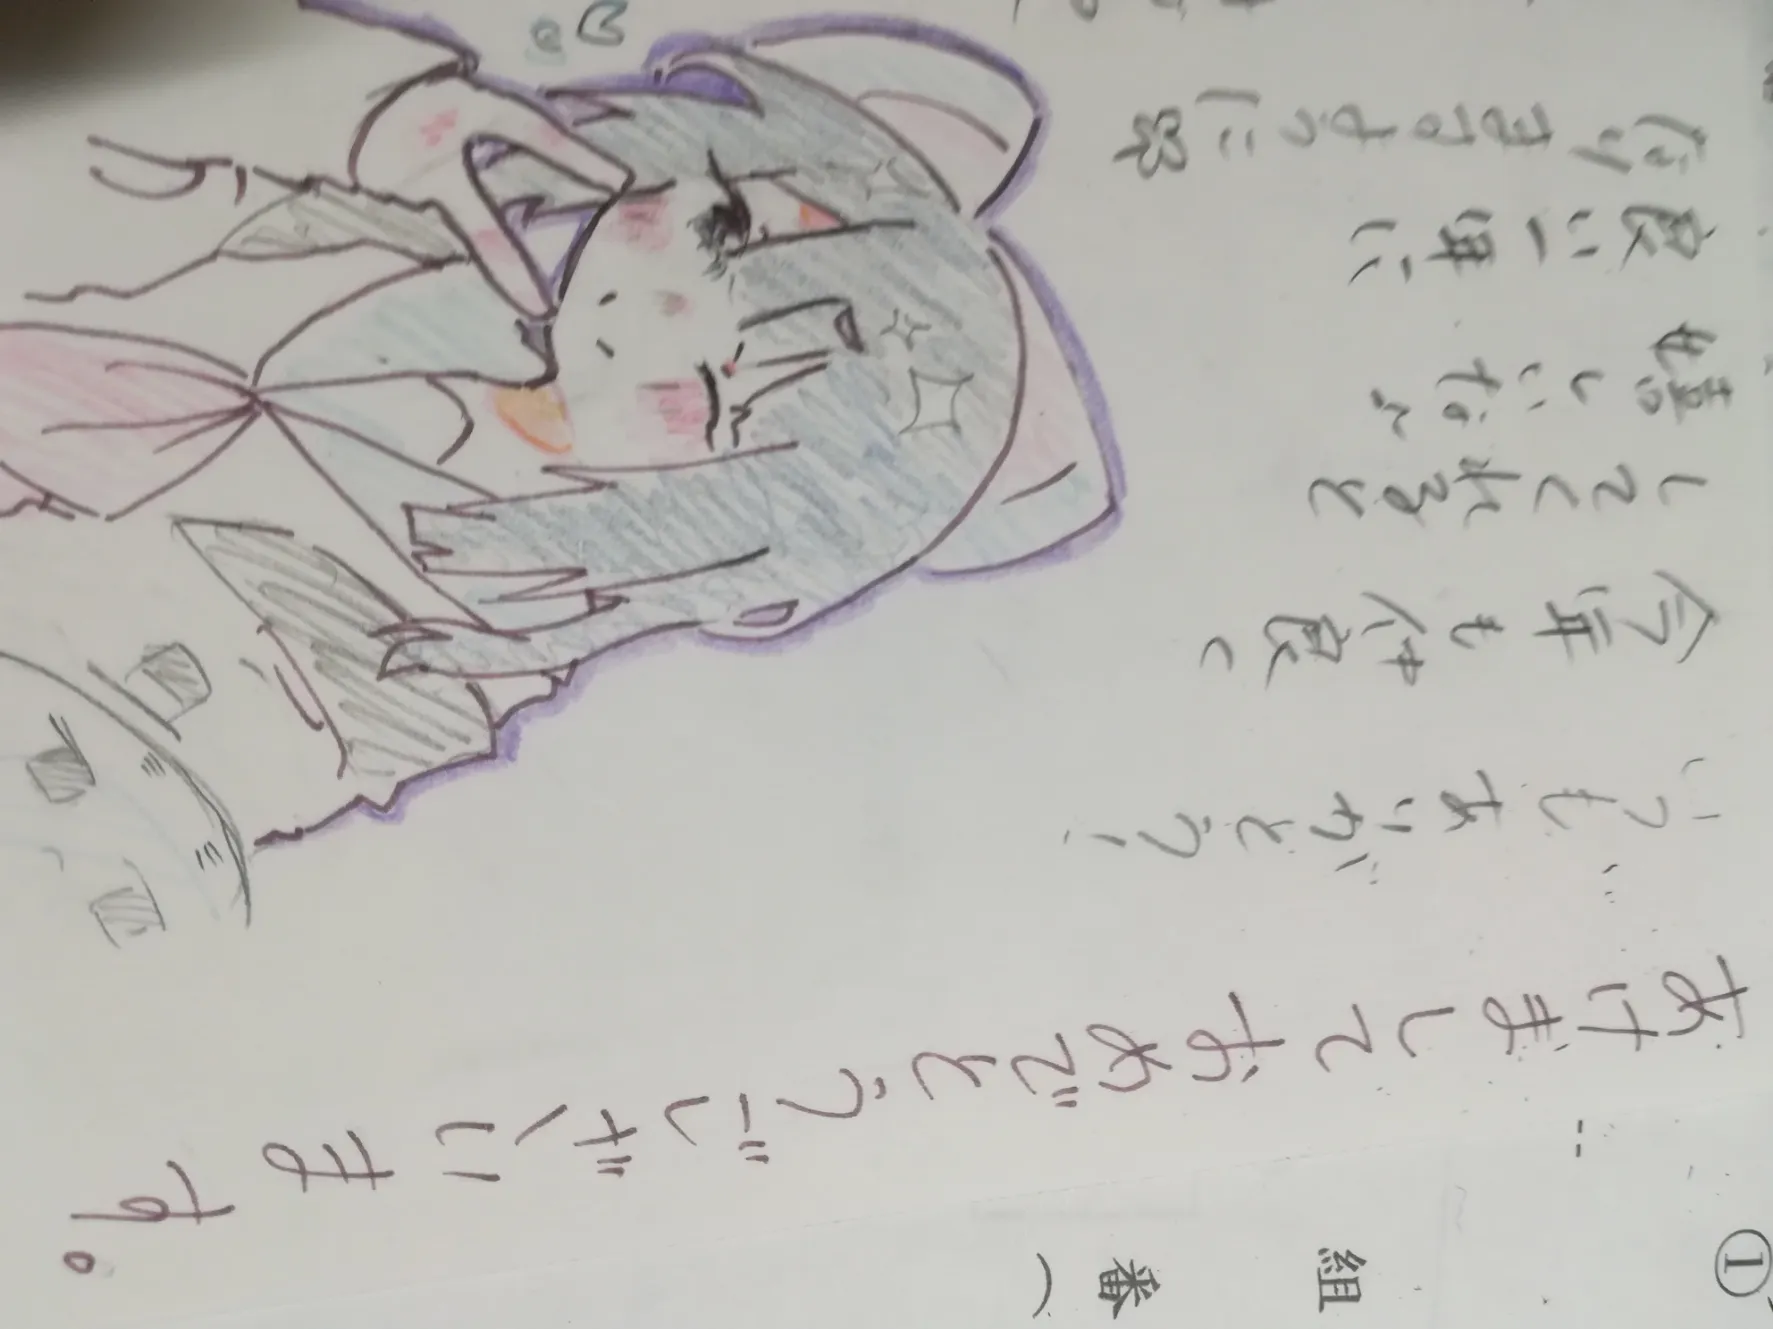 ① 組 番 (
あけましておめでとうございます。
いつもありがとう!
今年も仲良く
してくれると
嬉しいな~
良い一年に